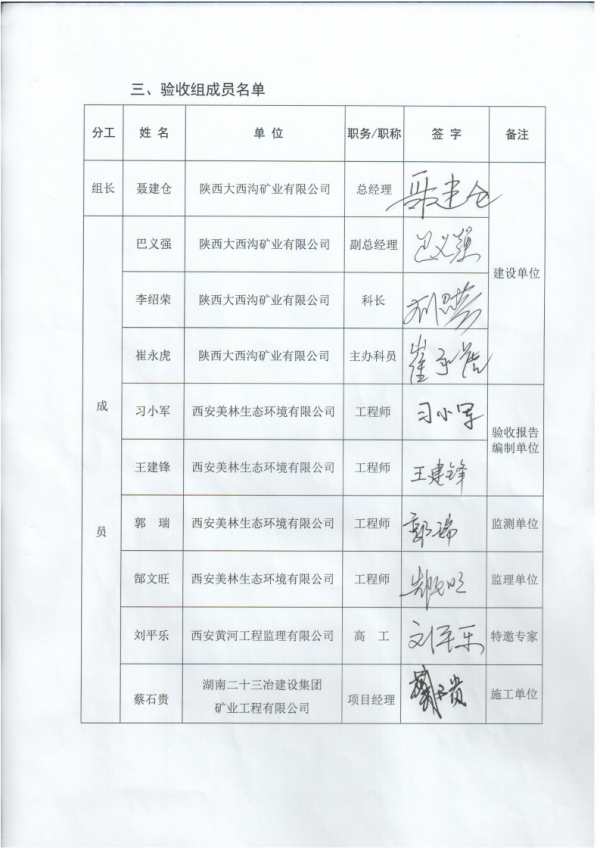 三、验收组成员名单
分工 姓 名 单 位 职务/职称 签 字 备注
组长 聂建仓 陕西大西沟矿业有限公司 总经理 聂建仓
巴义强 陕西大西沟矿业有限公司 副总经理 巴义强
建设单位
李绍荣 陕西大西沟矿业有限公司 科长
崔永虎 陕西大西沟矿业有限公司 主办科员 崔永虎
成
习小军 西安美林生态环境有限公司 工程师 习小军
验收报告
编制单位
王建锋 西安美林生态环境有限公司 工程师 王建锋
员
郭 瑞 西安美林生态环境有限公司 工程师 郭瑞 监测单位
郜文旺 西安美林生态环境有限公司 工程师 监理单位
刘平乐 西安黄河工程监理有限公司 高 工 刘平乐 特邀专家
蔡石贵 湖南二十三冶建设集团
矿业工程有限公司 项目经理 施工单位